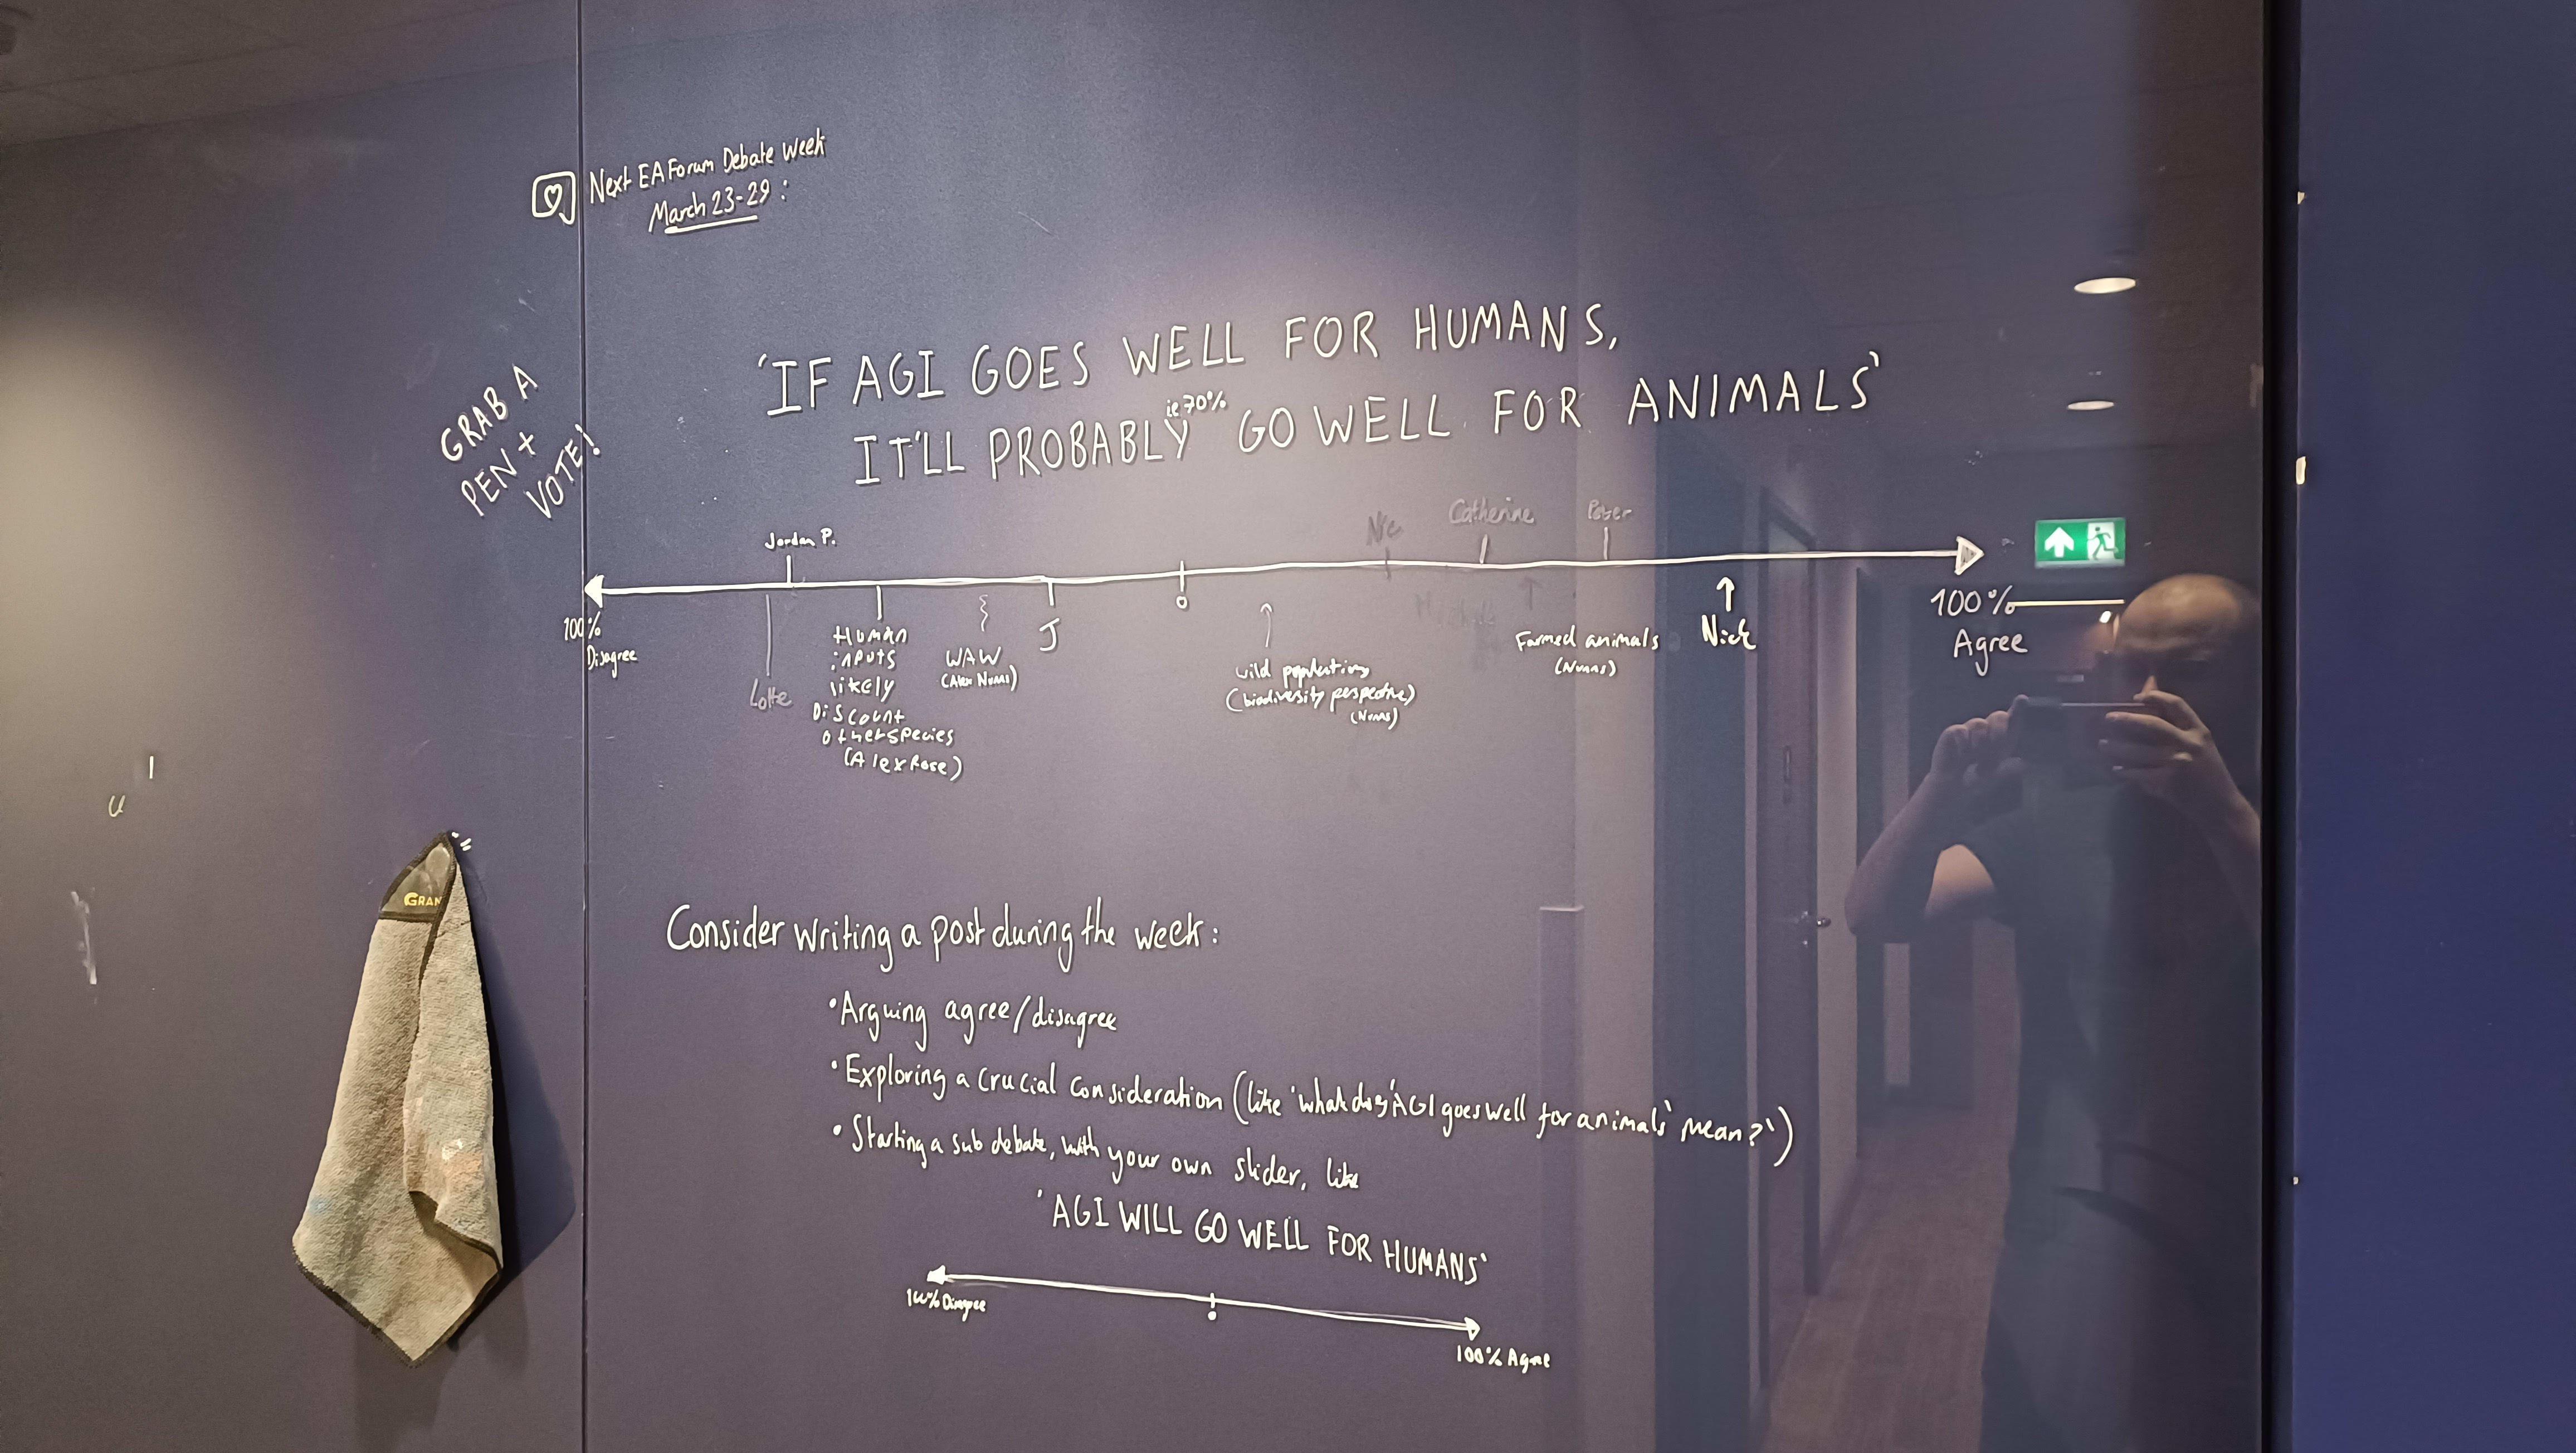 Next EA Forum Debate Week
March 23-29 :
GRAB A
PEN +
VOTE!
'IF AGI GOES WELL FOR HUMANS,
ie 70%
IT'LL PROBABLY GO WELL FOR ANIMALS'
Jordan P.
Nic
Catherine
Peter
100%
Disagree
Lotte
Human
inputs
likely
Discount
other species
(Alex Rose)
WAW
(Alex Nunns)
J
0
wild populations
(biodiversity perspective)
(Nunns)
Farmed animals
(Nunns)
Nick
100%
Agree
GRAN
Consider writing a post during the week :
• Arguing agree/disagree
• Exploring a crucial consideration (like 'what does 'AGI goes well for animals' mean?')
• Starting a sub debate, with your own slider, like
'AGI WILL GO WELL FOR HUMANS'
100% Disagree
0
100% Agree